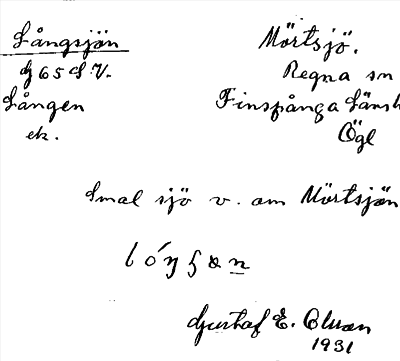 Långsjön Mörtsjö.
dj 65 S. V. Regna sn
Lången Finspånga Länsh
ek. Ögl
Smal sjö v. om Mörtsjön
Gustaf E. Olsson
1931